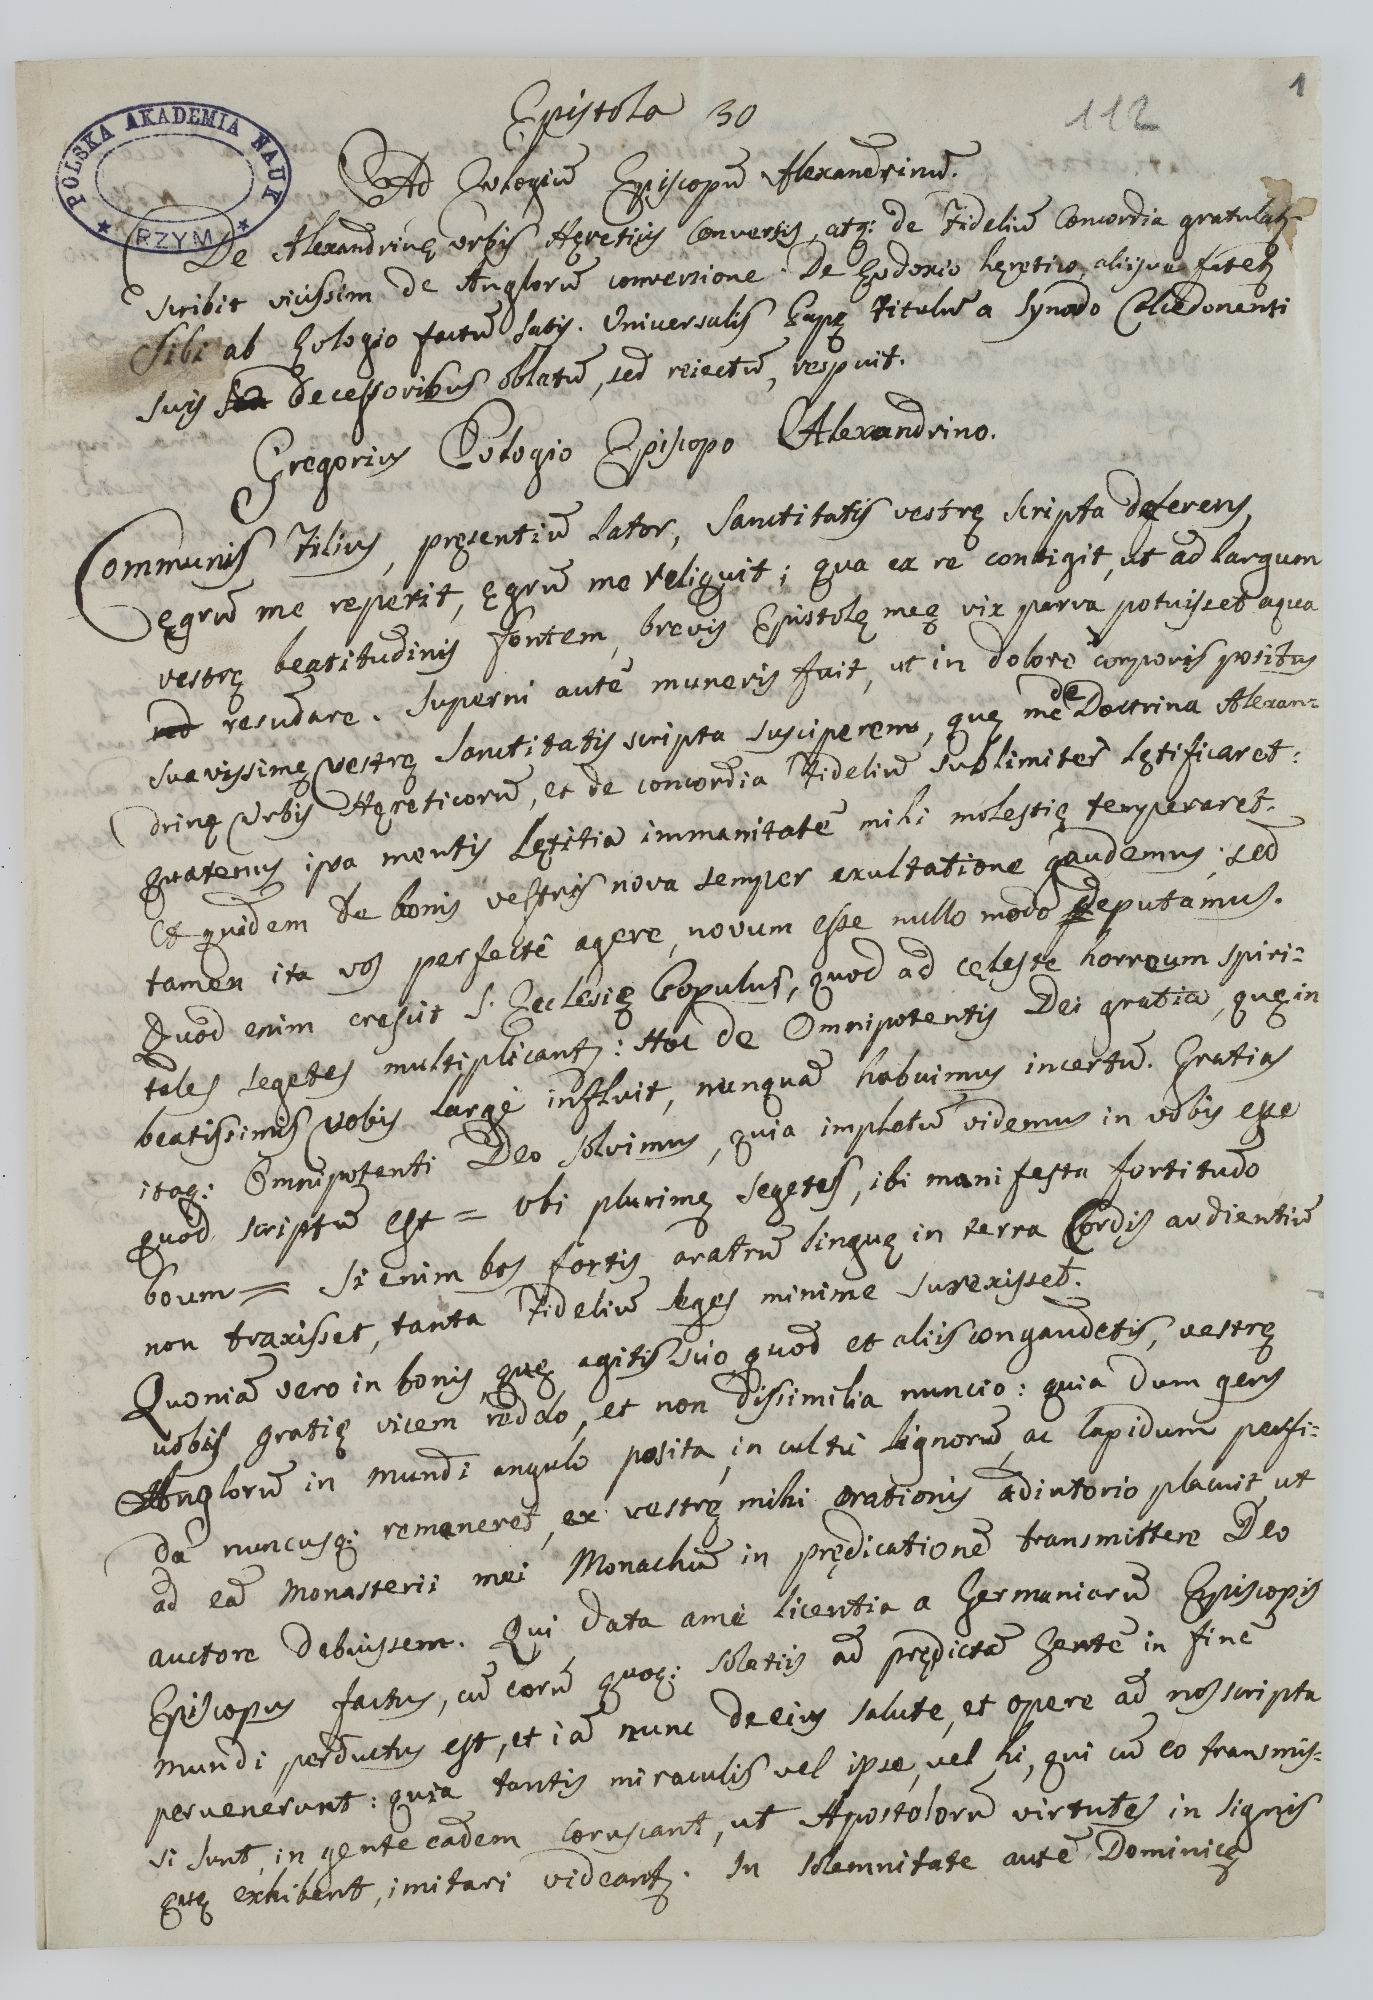 1
112
POLSKA AKADEMIA NAUK
RZYM
Epistola 30
Ad Eulogiū Episcopū Alexandrinū.
De Alexandrinę Urbis Hęreticis Conversis, atq: de Fideliū Concordia gratulat~
scribit vicissim de Anglorū conversione. De Eudoxio hęretico, alijsve fatet~
sibi ab Eulogio factū satis. Universalis Papę Titulū a Synodo Calcedonensi
suis decessoribus oblatū, sed reiectū, respuit.
Gregorius Eulogio Episcopo Alexandrino.
Communis Filius, pręsentiū Lator, Sanctitatis vestrę scripta deferens,
ęgrū me reperit, ęgrū me reliquit; qua ex re contigit, ut ad largum
vestrę beatitudinis fontem, brevis Epistolę meę vix parva potuisset aqua
resudare. Superni autē muneris fuit, ut in dolore corporis positus
suavissimę vestrę Sanctitatis scripta susciperem, quę me de Doctrina Alexan=
drinę Urbis Hęreticorū, et de concordia Fideliū sublimiter lętificaret:
quatenus ipsa mentis lętitia immanitatē mihi molestię temperaret.
Et quidem de bonis vestris nova semper exultatione gaudemus; sed
tamen ita vos perfectè agere, novum esse nullo modo deputamus.
Quod enim crescit S. Ecclesię Populus, quod ad cęleste horreum spiri=
tales segetes multiplicant~: Hoc de Omnipotentis Dei gratia, quę in
beatissimis vobis largè influit, nunquā habuimus incertū. Gratias
itaq: Omnipotenti Deo solvimus, quia impletū videmus in vobis esse
quod scriptū est = ubi plurimę segetes, ibi manifesta fortitudo
boum = Si enim bos fortis aratrū linguę in terra Cordis audientiū
non traxisset, tanta Fideliū seges minime surexisset.
Quoniā vero in bonis quę agitis scio quod et aliis congaudetis, vestrę
vobis gratię vicem reddo, et non dissimilia nuncio: quia dum gens
Anglorū in mundi angulo posita, in cultu lignorū, ac lapidum perfi=
dā nuncusq: remaneret, ex vestrę mihi orationis adiutorio placuit ut
ad eā monasterii mei Monachū in prędicationē transmittere Deo
auctore debuissem. Qui data a me licentia a Germaniarū Episcopis
Episcopus factus, cū eorū quoq: solatiis ad prędictā Gentē in finē
mundi perductus est, et iā nunc de eius salute, et opere ad nos scripta
pervenerunt: quia tantis miraculis vel ipse, vel hi, qui cū eo transmis=
si sunt, in gente eadem coruscant, ut Apostolorū virtutes in signis
quę exhibent, imitari videant~. In solemnitate autē Dominicę